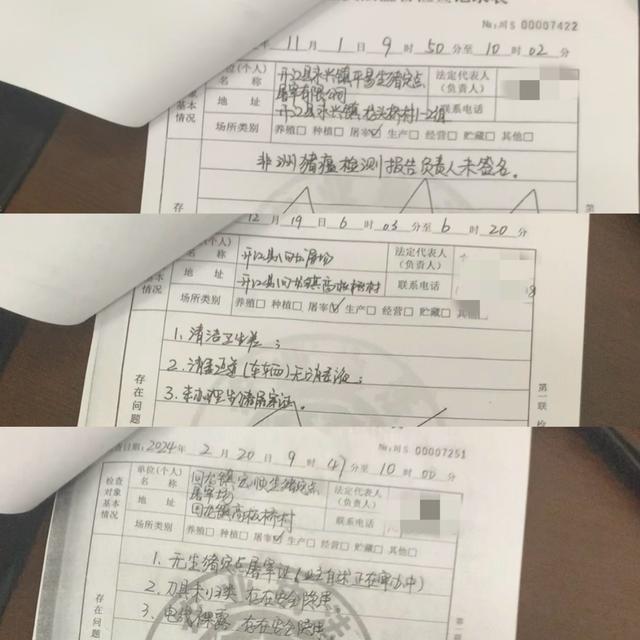 №:川S 00007422
11 月 1 日 9 时 50 分至 10 时 02 分
单位(个人)名称 开江县永兴镇平易生猪定点屠宰有限公司
法定代表人(负责人)
基本情况
地址 开江县永兴镇 村1-2组
联系电话
场所类别 养殖□ 种植□ 屠宰☑ 生产□ 经营□ 贮藏□ 其他□
非洲猪瘟检测报告负责人未签名。
存在
第一
12 月 19 日 6 时 03 分至 6 时 20 分
开江县 屠场
名称
法定代表人(负责人)
基本情况
地址 开江县 镇高板桥村
联系电话
场所类别 养殖□ 种植□ 屠宰☑ 生产□ 经营□ 贮藏□ 其他□
1. 清洁卫生差;
2. 消毒通道(车车四)无消毒液;
3. 未办理生猪屠宰证。
存在问题
第一联 检
日期: 2024 年 2 月 20 日 9 时 47 分至 10 时 00 分
№:川S 00007251
检查对象基本情况
单位(个人)名称 回龙镇 生猪定点屠宰场
法定代表人(负责人)
地址 回龙镇高板桥村
联系电话
场所类别 养殖□ 种植□ 屠宰☑ 生产□ 经营□ 贮藏□ 其他□
1. 无生猪定点屠宰证(业主自述正在审办中)
2. 刀具未归类 存在安全隐患
3. 电线裸露 存在安全隐患